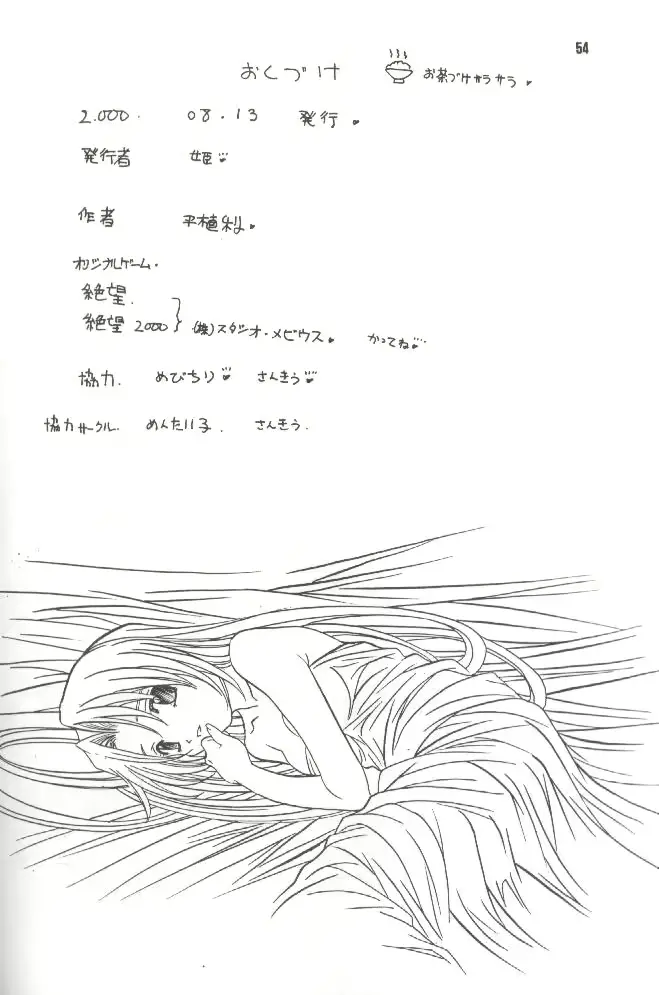 54
おくづけ お茶づけサラサラ
2.000. 08.13 発行
発行者 姫
作者 平植利
オリジナルゲーム.
絶望.
絶望 2000 } (株)スタジオ・メビウス. かってね
協力. めびちり さんきう
協力サークル. めんたい子. さんきう.